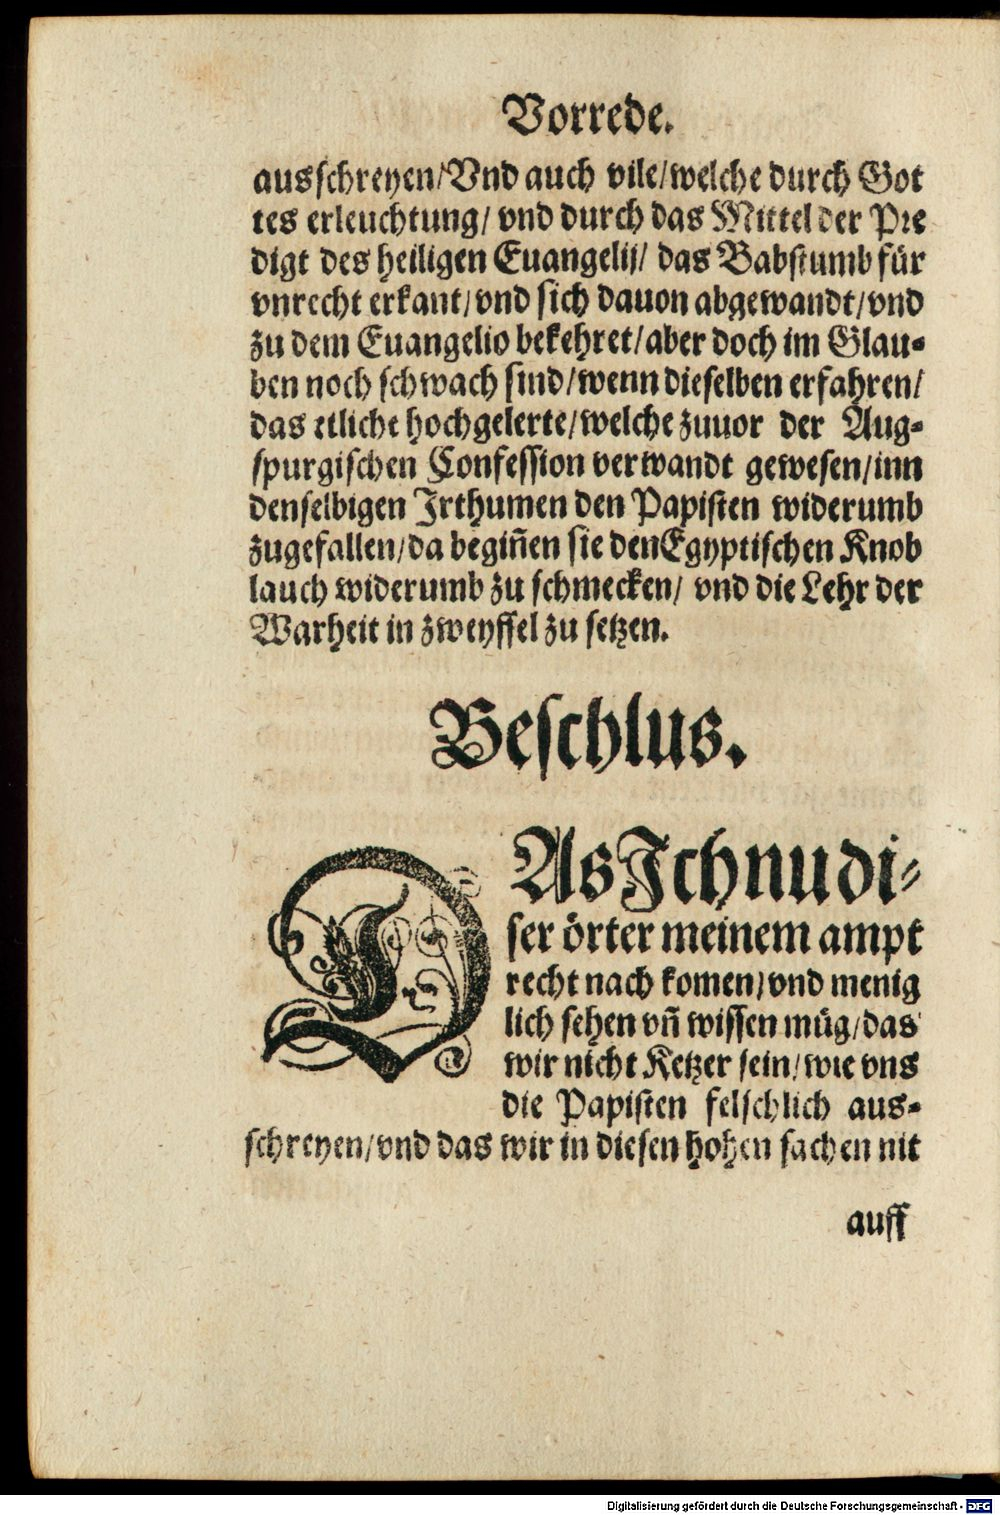 Vorrede.
ausschreyen/Vnd auch vile/welche durch Got
tes erleuchtung/ vnd durch das Mittel der Pre
digt des heiligen Euangelij/ das Babstumb für
vnrecht erkant/vnd sich dauon abgewandt/vnd
zu dem Euangelio bekehret/aber doch im Glau-
ben noch schwach sind/wenn dieselben erfahren/
das etliche hochgelerte/welche zuuor der Aug-
spurgischen Confession verwandt gewesen/inn
denselbigen Irthumen den Papisten widerumb
zugefallen/da begiñen sie den Egyptischen Knob
lauch widerumb zu schmecken/ vnd die Lehr der
Warheit in zweyffel zu setzen.
Beschlus.
DAs Ich nu di-
ser örter meinem ampt
recht nach komen/vnd menig
lich sehen vñ wissen müg/das
wir nicht Ketzer sein/wie vns
die Papisten felschlich aus-
schreyen/vnd das wir in diesen hohen sachen nit
auff
Digitalisierung gefördert durch die Deutsche Forschungsgemeinschaft - DFG